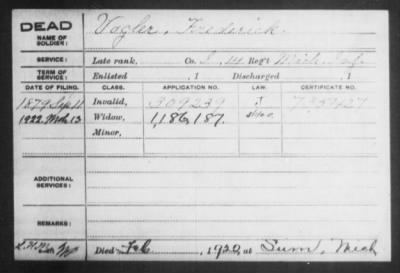 DEAD
NAME OF SOLDIER: Vogler, Frederick.
SERVICE: Late rank, Co. I, 14 Reg't Mich. Inf.
TERM OF SERVICE: Enlisted , 1 Discharged , 1
DATE OF FILING. CLASS. APPLICATION NO. LAW. CERTIFICATE NO.
1879 Sep 11 Invalid, 309239
1922 Mch 13 Widow, 1,186,187.
Minor,
ADDITIONAL SERVICES:
REMARKS:
Died Feb , 1920, at , Mich